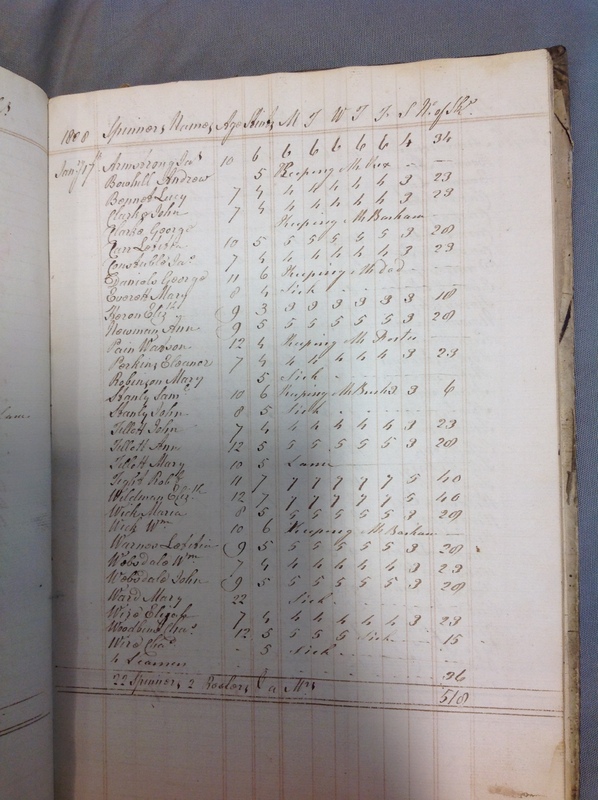 1808 Spinners Names Age Stint M T W T F S No of Skns
Jany 17th Armstrong Jas 10 6 6 6 6 6 6 4 34
Bowhill Andrew 5 Keeping Mr
Bennet Lucy 7 4 4 4 4 4 4 3 23
Clarke John 7 4 4 4 4 4 4 3 23
Clarke George Keeping Mr Basham
Carr Letitia 10 5 5 5 5 5 5 3 28
Constable Jas 7 4 4 4 4 4 4 3 23
Daniels George 11 6 Keeping Mr
Everett Mary 8 4 Sick
Heron Elizth 9 3 3 3 3 3 3 3 18
Newman Ann 9 5 5 5 5 5 5 3 28
Pain Watson 12 4 Keeping Mr
Perkins Eleanor 7 4 4 4 4 4 4 3 23
Robinson Mary 5 Sick
Stanly Saml 10 6 Keeping Mr 3 3 6
Stanly John 8 5 Sick
Tillott John 7 4 4 4 4 4 4 3 23
Tillott Ann 12 5 5 5 5 5 5 3 28
Tillott Mary 10 5 Lame
Tight Robt 11 7 7 7 7 7 7 5 40
Wildman Elizth 12 7 7 7 7 7 7 5 40
Wick Maria 8 5 5 5 5 5 5 3 28
Wick Wm 10 6 Keeping Mr Basham
Warnes Letitia 9 5 5 5 5 5 5 3 28
Wobsdale Wm 7 4 4 4 4 4 4 3 23
Wobsdale John 9 5 5 5 5 5 5 3 28
Ward Mary 22 Sick
7 4 4 4 4 4 4 3 23
Woodbine Chas 12 5 5 5 5 Sick 15
Chas 5 Sick
4 Learners 26
22 Spinners 2 Reelers & a Mrs 518
Lame